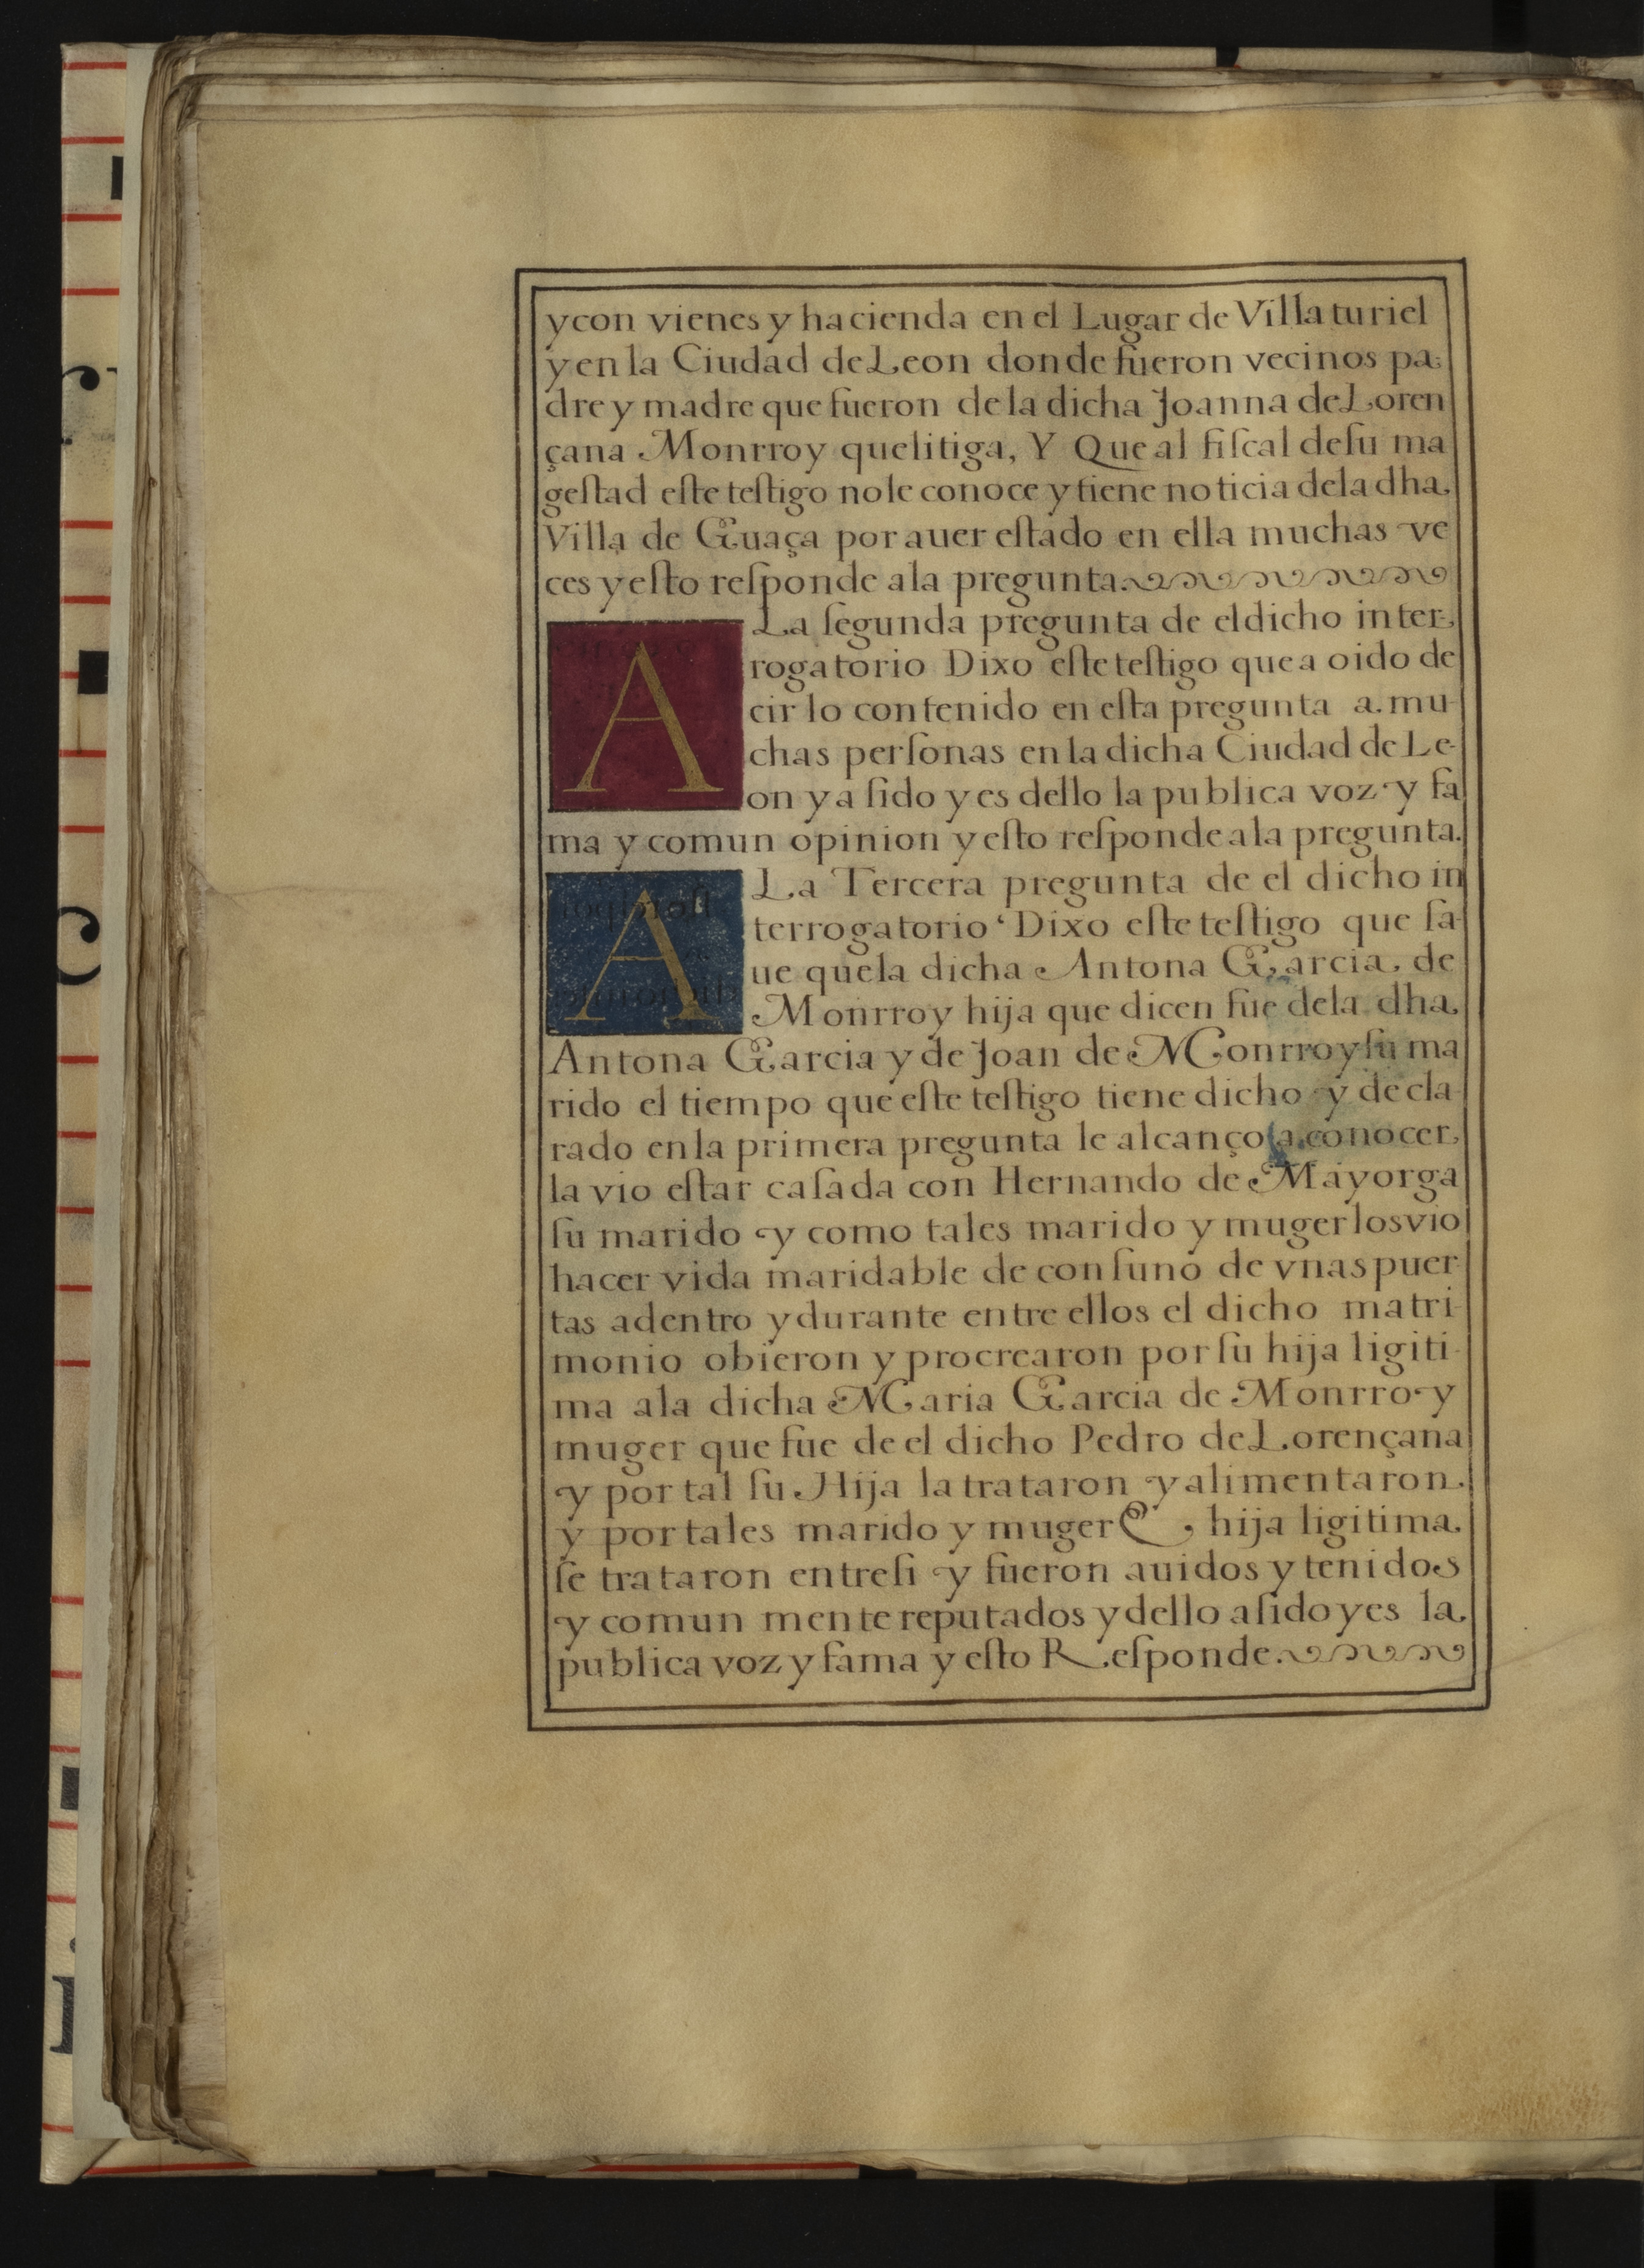 y con vienes y hacienda en el Lugar de Villaturiel
y en la Ciudad de Leon donde fueron vecinos pa
dre y madre que fueron de la dicha Joanna de Loren
çana Monrroy que litiga, Y Que al fiſcal de ſu ma
geſtad eſte teſtigo no le conoce y tiene noticia de la dha.
Villa de Guaça por auer eſtado en ella muchas ve
ces y eſto reſponde a la pregunta.
A La ſegunda pregunta de el dicho inter
rogatorio Dixo eſte teſtigo que a oido de
cir lo contenido en eſta pregunta a. mu-
chas perſonas en la dicha Ciudad de Le-
on y a ſido y es dello la publica voz y fa
ma y comun opinion y eſto reſponde a la pregunta.
A La Tercera pregunta de el dicho in
terrogatorio Dixo eſte teſtigo que ſa-
ue que la dicha Antona Garcia, de
Monrroy hija que dicen fue de la dha.
Antona Garcia y de Joan de Monrroy ſu ma
rido el tiempo que eſte teſtigo tiene dicho y decla-
rado en la primera pregunta le alcanço a conocer,
la vio eſtar caſada con Hernando de Mayorga
ſu marido y como tales marido y muger los vio
hacer vida maridable de conſuno de vnas puer-
tas adentro y durante entre ellos el dicho matri-
monio obieron y procrearon por ſu hija ligiti-
ma a la dicha Maria Garcia de Monrroy
muger que fue de el dicho Pedro de Lorençana
y por tal ſu Hija la trataron y alimentaron.
y por tales marido y muger E, hija ligitima.
ſe trataron entre ſi y fueron auidos y tenidos
y comun mente reputados y dello a ſido y es la.
publica voz y fama y eſto Reſponde.